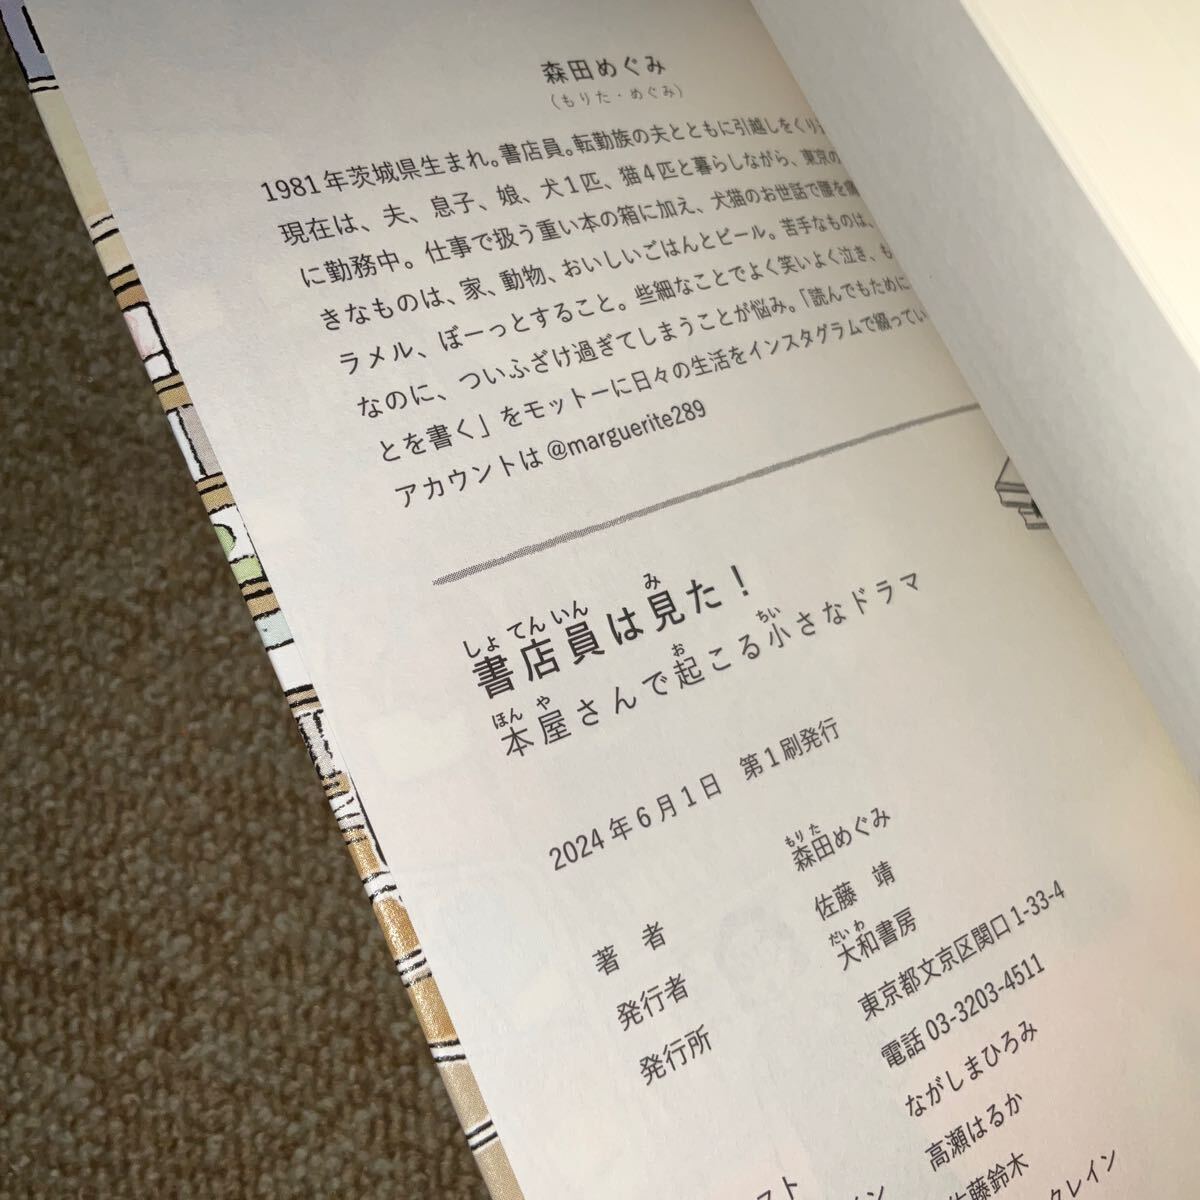 森田めぐみ
(もりた・めぐみ)
1981年茨城県生まれ。書店員。転勤族の夫とともに引越しをくり
現在は、夫、息子、娘、犬1匹、猫4匹と暮らしながら、東京の
に勤務中。仕事で扱う重い本の箱に加え、犬猫のお世話で腰を
きなものは、家、動物、おいしいごはんとビール。苦手なものは、
ラメル、ぼーっとすること。些細なことでよく笑いよく泣き、も
なのに、ついふざけ過ぎてしまうことが悩み。「読んでもために
とを書く」をモットーに日々の生活をインスタグラムで綴ってい
アカウントは @marguerite289
しょ てん いん み
書店員は見た!
ほん や お ちい
本屋さんで起こる小さなドラマ
2024年6月1日 第1刷発行
もり た
著 者 森田めぐみ
発行者 佐藤 靖
だい わ
発行所 大和書房
東京都文京区関口1-33-4
電話 03-3203-4511
ながしまひろみ
高瀬はるか
佐藤鈴木
スト
クレイン
イン